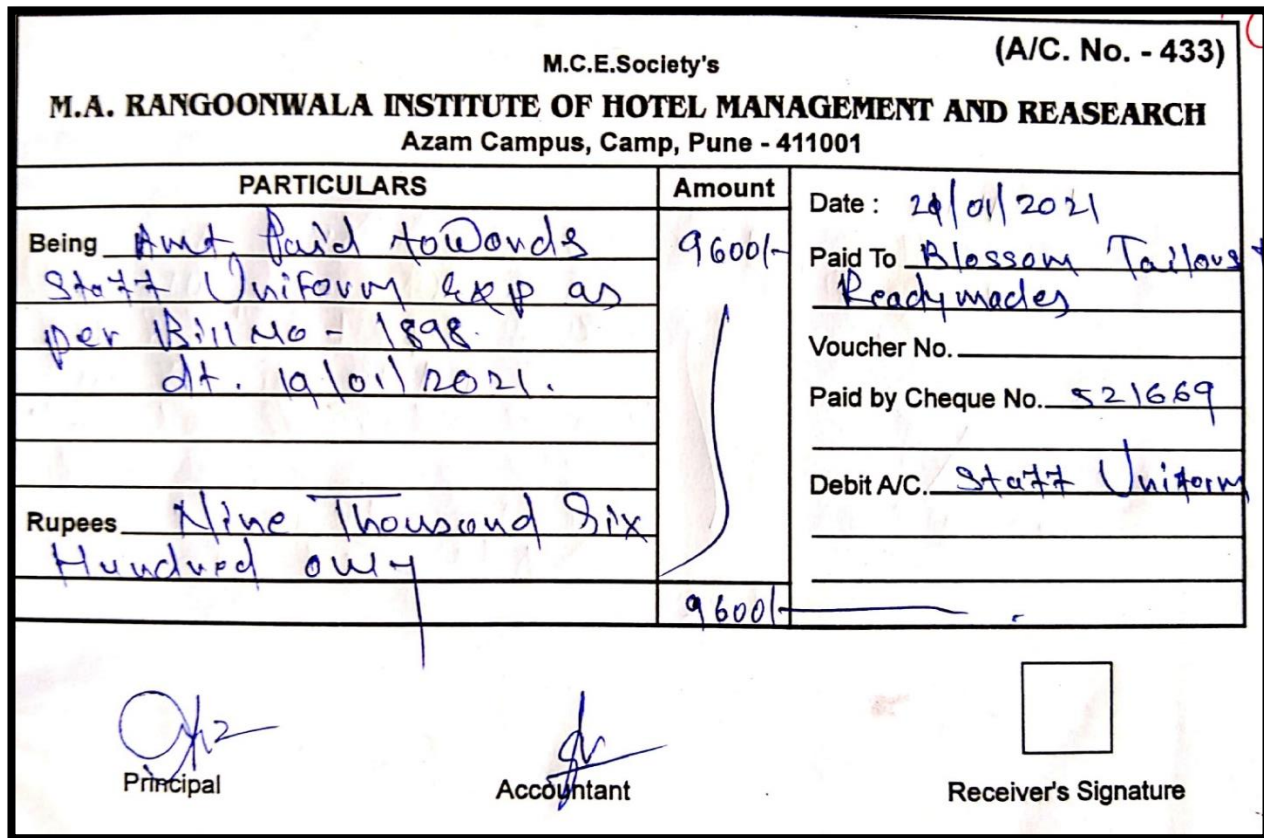 (A/C. No. - 433)
M.C.E.Society's
M.A. RANGOONWALA INSTITUTE OF HOTEL MANAGEMENT AND REASEARCH
Azam Campus, Camp, Pune - 411001
PARTICULARS
Being Amt. Paid towards
Staff Uniform exp as
per Bill No - 1898.
dt. 19/01/2021.
Rupees Nine Thousand Six
Hundred only
Amount
9600/-
9600/-
Date : /01/2021
Paid To Blossom Tailors &
Readymades
Voucher No.
Paid by Cheque No. 521669
Debit A/C. Staff Uniform
Principal
Accountant
Receiver's Signature